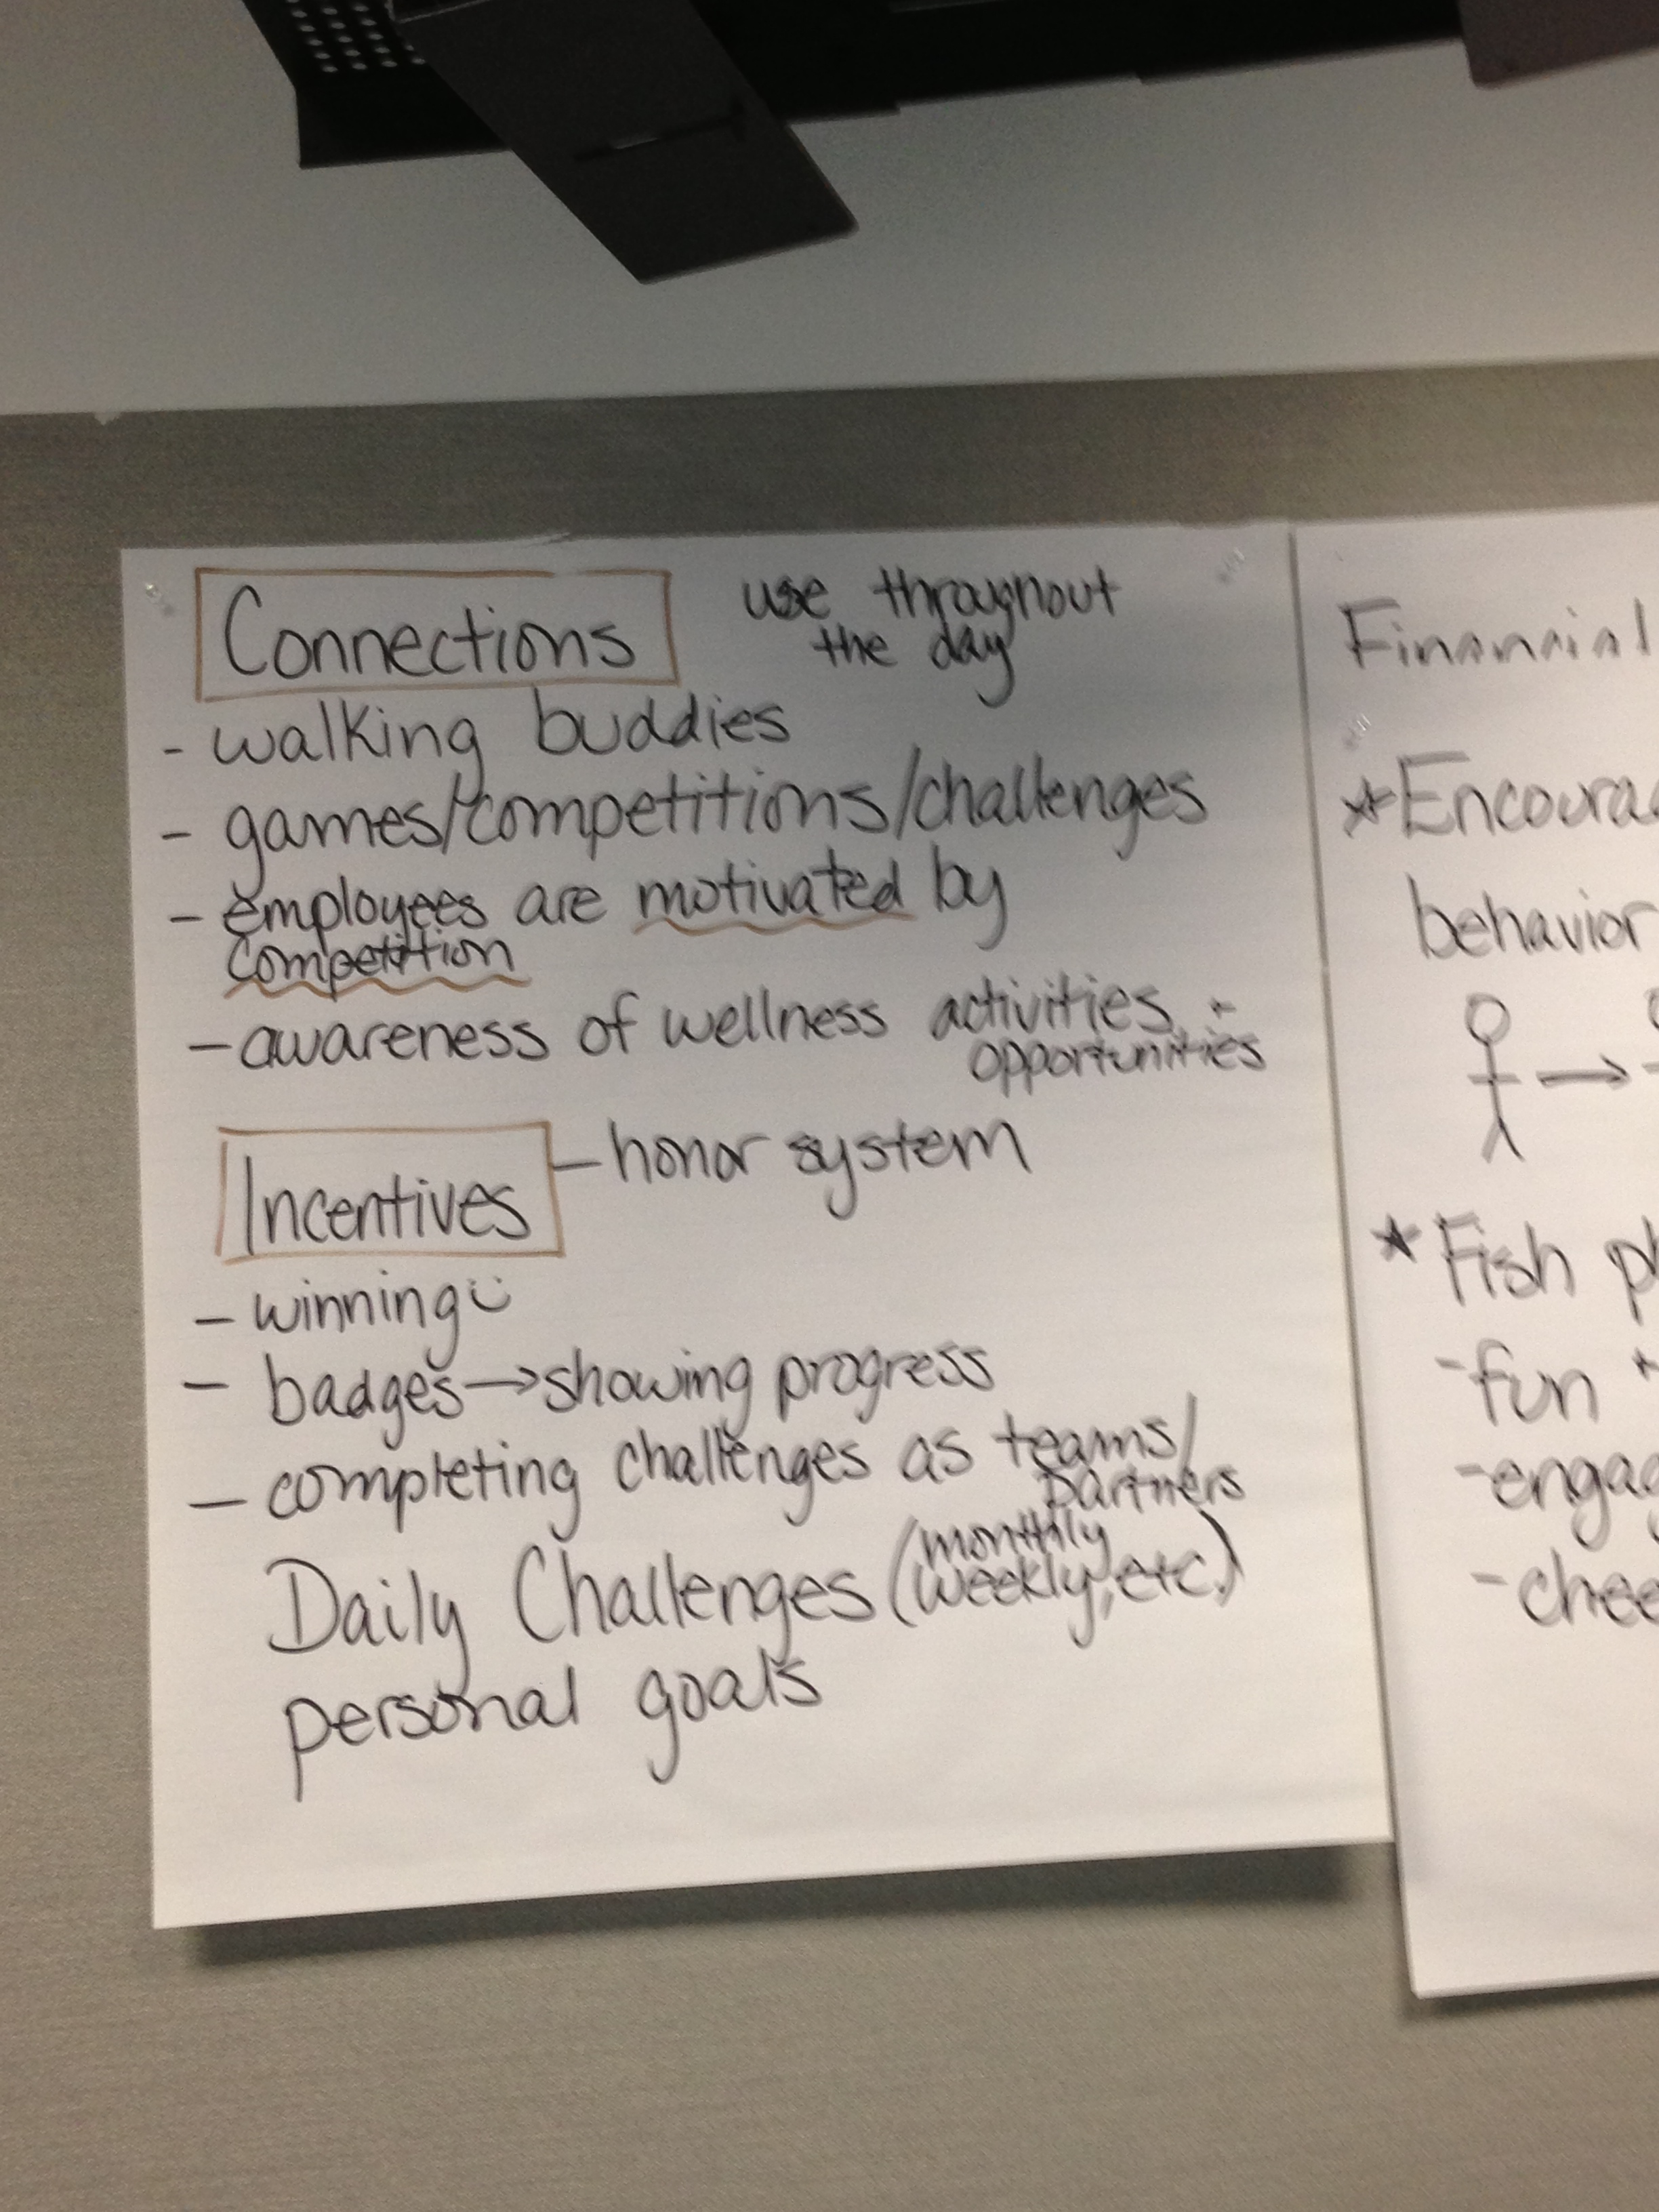 Connections
use throughout
the day
- walking buddies
- games/competitions/challenges
- employees are motivated by
competition
- awareness of wellness activities +
opportunities
Incentives - honor system
- winning :)
- badges → showing progress
- completing challenges as teams/
partners
Daily Challenges (monthly
weekly, etc.)
personal goals
Financial
* Encourag
behavior
* Fish ph
- fun +
- engag
- chee